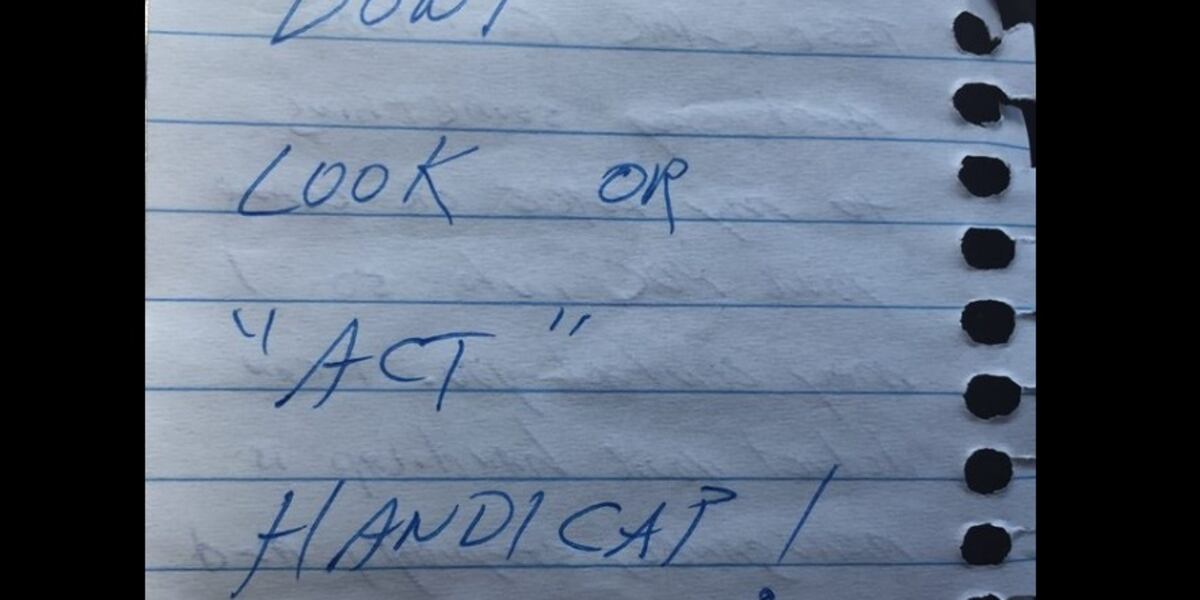 DON'T
LOOK OR
"ACT"
HANDICAP!